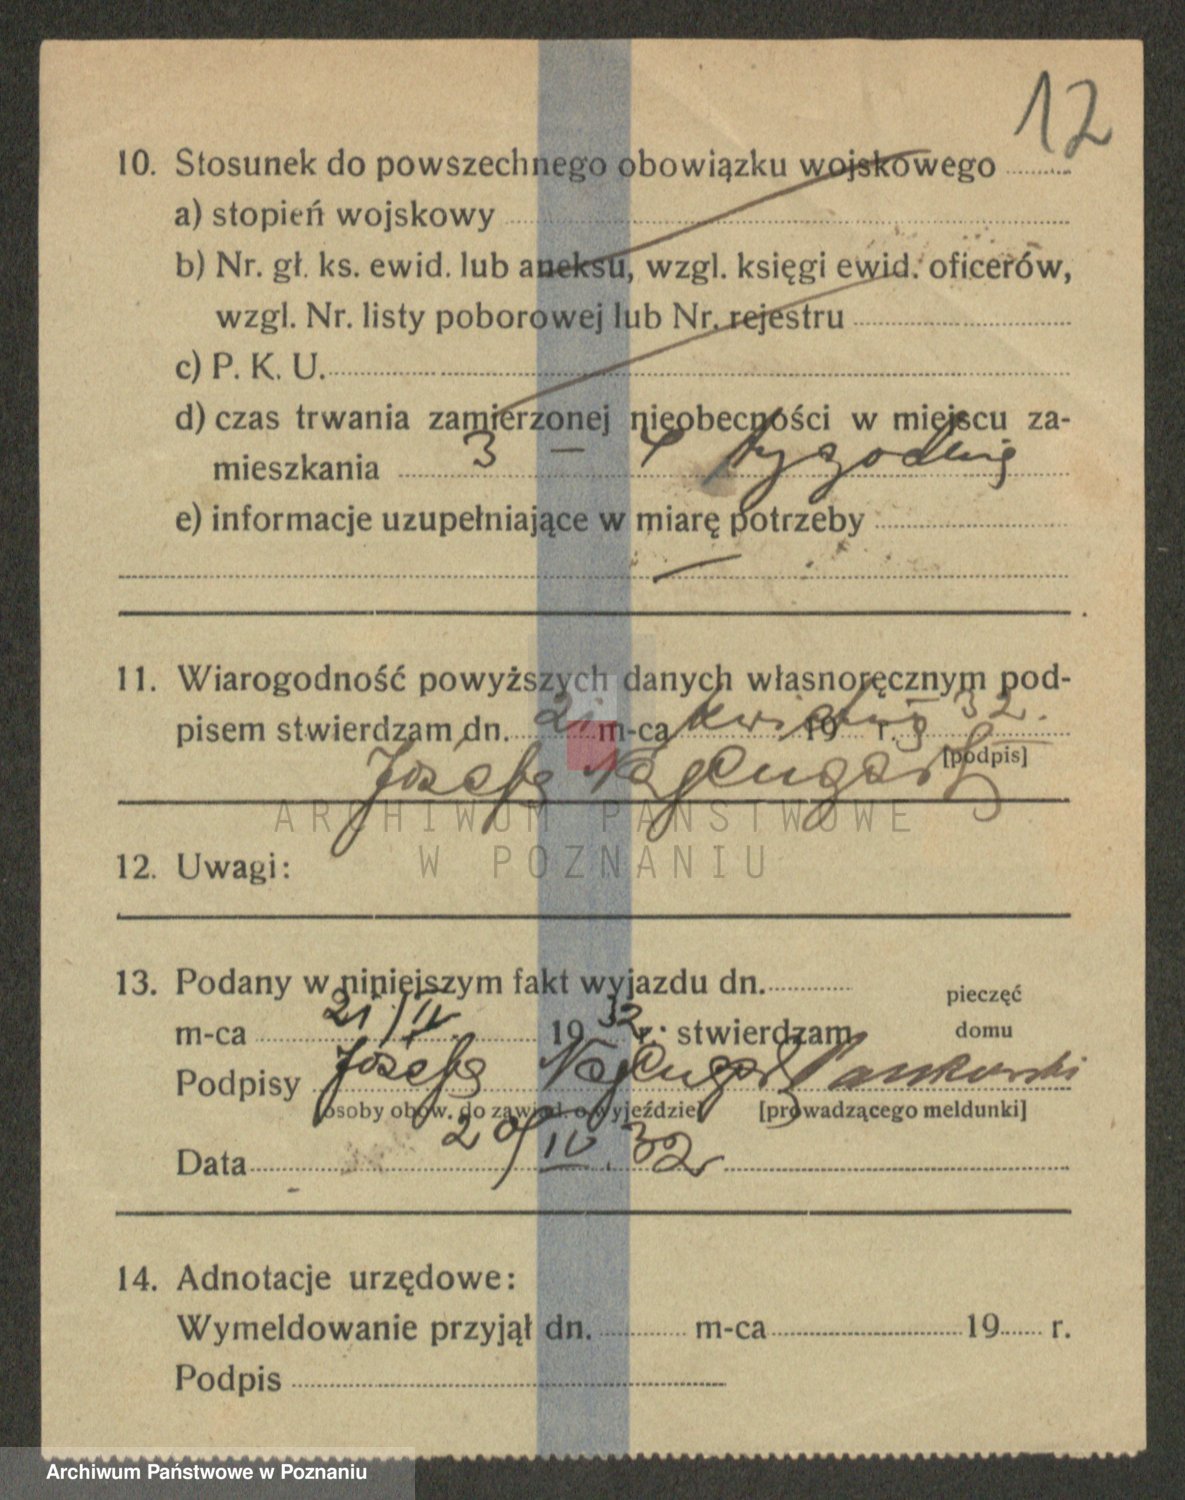 12
10. Stosunek do powszechnego obowiązku wojskowego
a) stopień wojskowy
b) Nr. gł. ks. ewid. lub aneksu, wzgl. księgi ewid. oficerów,
wzgl. Nr. listy poborowej lub Nr. rejestru
c) P. K. U.
d) czas trwania zamierzonej nieobecności w miejscu za-
mieszkania 3 — 4 tygodnie
e) informacje uzupełniające w miarę potrzeby
11. Wiarogodność powyższych danych własnoręcznym pod-
pisem stwierdzam dn. 21 m-ca kwietnia 19 r. 32.
Józefa [podpis]
ARCHIWUM PAŃSTWOWE
W POZNANIU
12. Uwagi:
13. Podany w niniejszym fakt wyjazdu dn.
pieczęć
m-ca 21/IV. 19 32 r. stwierdzam
domu
Podpisy Józefa Pankowski
osoby obow. do zawiad. o wyjeździe [prowadzącego meldunki]
Data IV. 32
14. Adnotacje urzędowe:
Wymeldowanie przyjął dn. m-ca 19 r.
Podpis
Archiwum Państwowe w Poznaniu